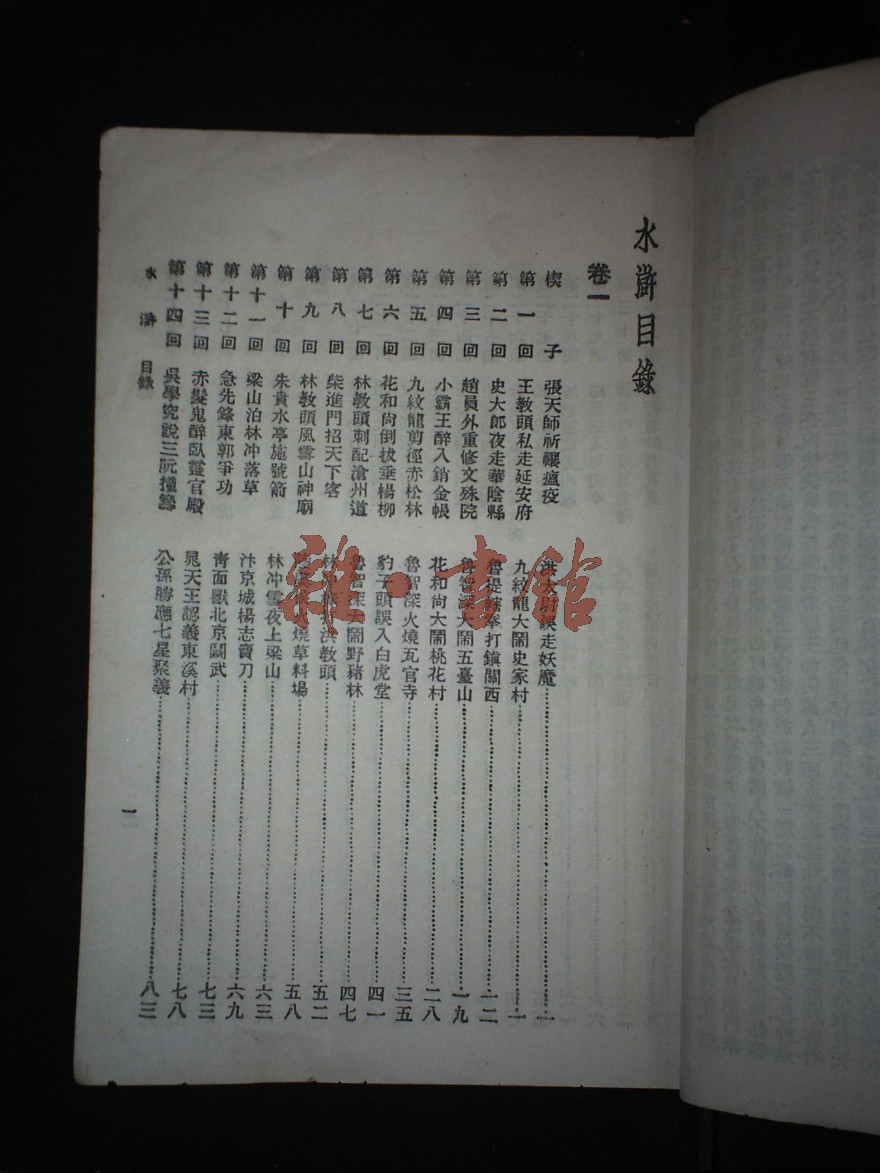 水滸目錄
卷一
楔子 張天師祈禳瘟疫 洪太尉誤走妖魔 一
第一回 王教頭私走延安府 九紋龍大鬧史家村 一
第二回 史大郎夜走華陰縣 魯提轄拳打鎮關西 一二
第三回 趙員外重修文殊院 魯智深大鬧五臺山 一九
第四回 小霸王醉入銷金帳 花和尙大鬧桃花村 二八
第五回 九紋龍剪徑赤松林 魯智深火燒瓦官寺 三五
第六回 花和尙倒拔垂楊柳 豹子頭誤入白虎堂 四一
第七回 林教頭刺配滄州道 魯智深大鬧野豬林 四七
第八回 柴進門招天下客 林冲棒打洪教頭 五二
第九回 林教頭風雪山神廟 火燒草料場 五八
第十回 朱貴水亭施號箭 林冲雪夜上梁山 六三
第十一回 梁山泊林冲落草 汴京城楊志賣刀 六九
第十二回 急先鋒東郭爭功 靑面獸北京鬪武 七三
第十三回 赤髮鬼醉臥靈官殿 晁天王認義東溪村 七八
第十四回 吳學究說三阮撞籌 公孫勝應七星聚義 八三
水滸 目錄
一
雜·書館